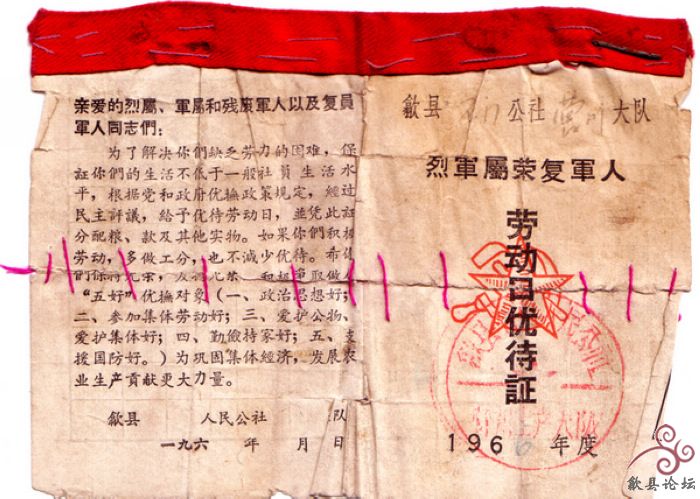 亲爱的烈屬、軍屬和残廢軍人以及复員
軍人同志們:
为了解决你們缺乏劳力的困难,保
証你們的生活不低于一般社員生活水
平,根据党和政府优撫政策規定,經过
民主評議,給予优待劳动日,並凭此証
分配粮、款及其他实物。如果你們积極
劳动,多做工分,也不減少优待。希
們保持光荣,发揚光荣,积極爭取做个
“五好”优撫对象(一、政治思想好;
二、参加集体劳动好;三、爱护公物、
爱护集体好;四、勤儉持家好;五、支
援国防好。)为巩固集体經济,发展农
业生产貢献更大力量。
歙县 人民公社 队
一九六 年 月 日
歙县 公社 大队
烈軍屬荣复軍人
劳动日优待証
1966 年度
歙县论坛